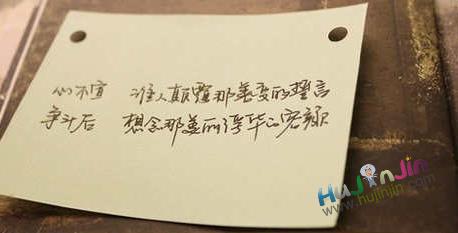 心不宣 谁人颠覆那善变的誓言
争斗后 想念那美丽浮华的容颜
HuJinJin
www.hujinjin.com